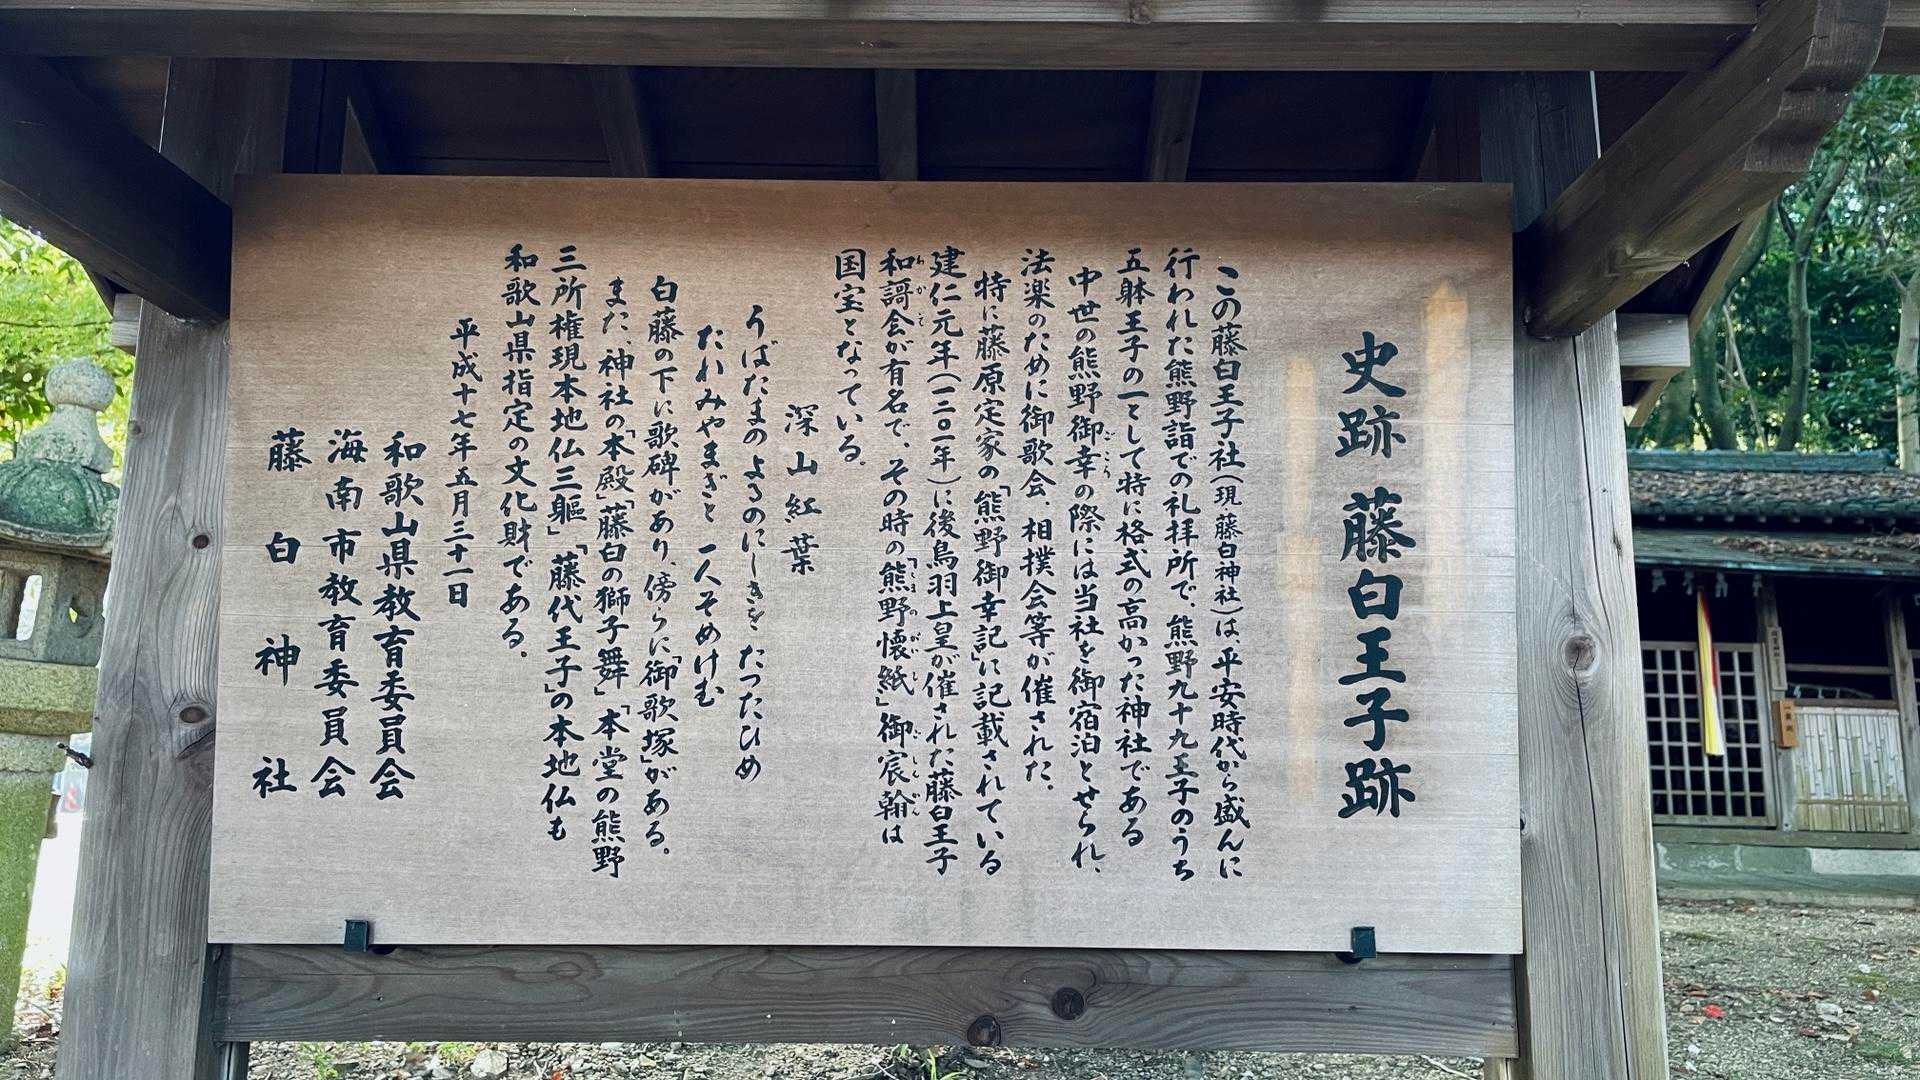 史跡 藤白王子跡
この藤白王子社(現 藤白神社)は、平安時代から盛んに
行われた熊野詣での礼拝所で、熊野九十九王子のうち
五躰王子の一として特に格式の高かった神社である
中世の熊野御幸の際には当社を御宿泊とせられ、
法楽のために御歌会、相撲会等が催された。
特に藤原定家の「熊野御幸記」に記載されている
建仁元年(一二〇一年)に後鳥羽上皇が催された藤白王子
和謌会が有名で、その時の「熊野懐紙」御宸翰は
国宝となっている。
深山紅葉
うばたまのよるのにしきをたつたひめ
たれみやまぎと一人そめけむ
白藤の下に歌碑があり、傍らに「御歌塚」がある。
また、神社の「本殿」「藤白の獅子舞」「本堂の熊野
三所権現本地仏三軀」「藤代王子」の本地仏も
和歌山県指定の文化財である。
平成十七年五月三十一日
和歌山県教育委員会
海南市教育委員会
藤白神社